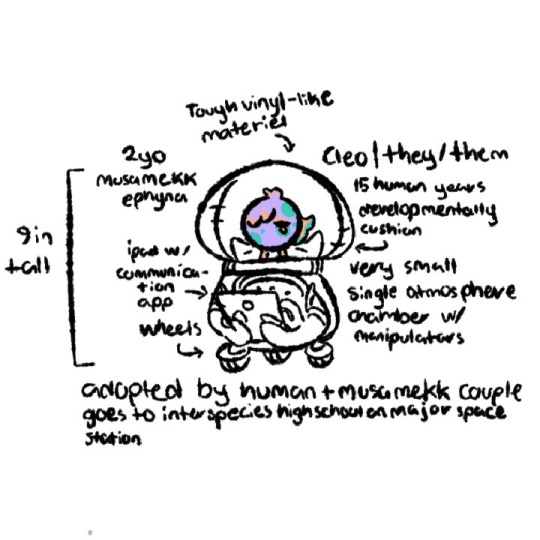 Tough vinyl-like
material
2yo
musamekk
ephyna
Cleo/they/them
15 human years
developmentally
cushion
9in
tall
ipad w/
communica-
tion
app
wheels
very small
single atmosphere
chamber w/
manipulators
adopted by human + musamekk couple
goes to interspecies highschool on major space
station